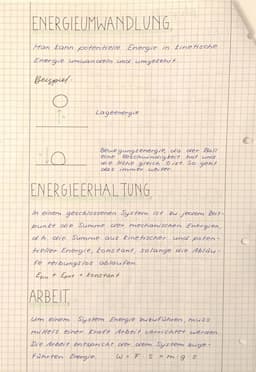 ENERGIEUMWANDLUNG,
Man kann potentielle Energie in kinetische
Energie umwandeln und umgekehrt.
Beispiel:
Lageenergie
Bewegungsenergie, da der Ball
eine Geschwindigkeit hat und
die Höhe gleich 0 ist. So geht
das immer weiter.
ENERGIEERHALTUNG,
In einem geschlossenen System ist zu jedem Zeit-
punkt die Summe der mechanischen Energien,
d.h. die Summe aus kinetischer und poten-
tieller Energie, konstant, solange die Abläu-
fe reibungslos ablaufen.
Ekin + Epot = konstant
ARBEIT,
Um einem System Energie zuzuführen, muss
mittels einer Kraft Arbeit verrichtet werden.
Die Arbeit entspricht der dem System zuge-
führten Energie. W = F · s = m · g · s